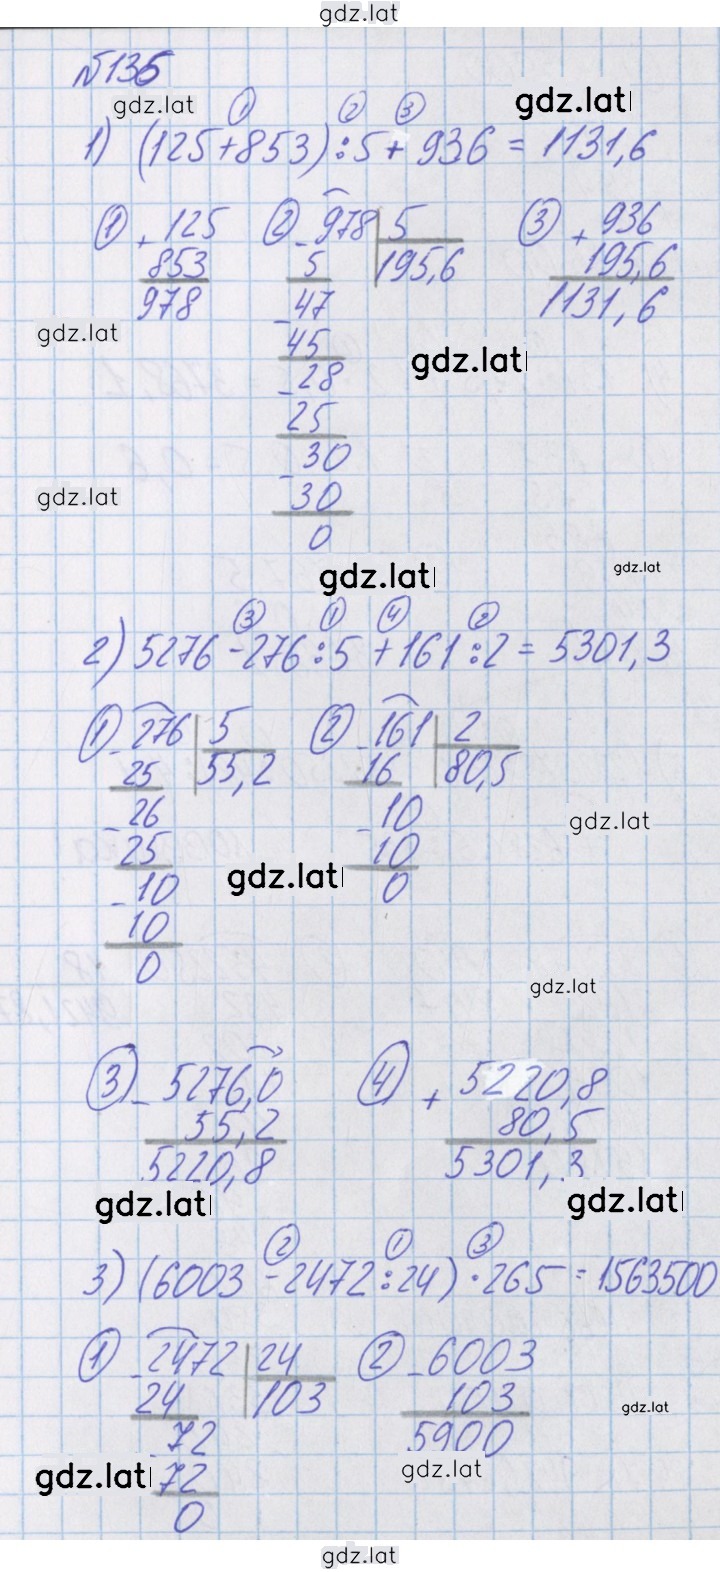 gdz.lat
№136
gdz.lat gdz.lat
① ② ③
1) (125+853):5+936=1131,6
① +125 ② -978 5 ③ + 936
853 5 195,6 195,6
978 -47 1131,6
gdz.lat 45 gdz.lat
-28
25
-30
gdz.lat 30
0
gdz.lat gdz.lat
③ ① ④ ②
2) 5276-276:5+161:2=5301,3
① -276 5 ② -161 2
25 55,2 16 80,5
-26 -10 gdz.lat
25 10
gdz.lat 0
-10
10
0
gdz.lat
③ -5276,0 ④ + 5220,8
55,2 80,5
5220,8 5301,3
gdz.lat gdz.lat
② ① ③
3) (6003-2472:24)·265=1563500
① -2472 24 ② -6003
24 103 103
gdz.lat
-72 5900
gdz.lat 72 gdz.lat
0
gdz.lat